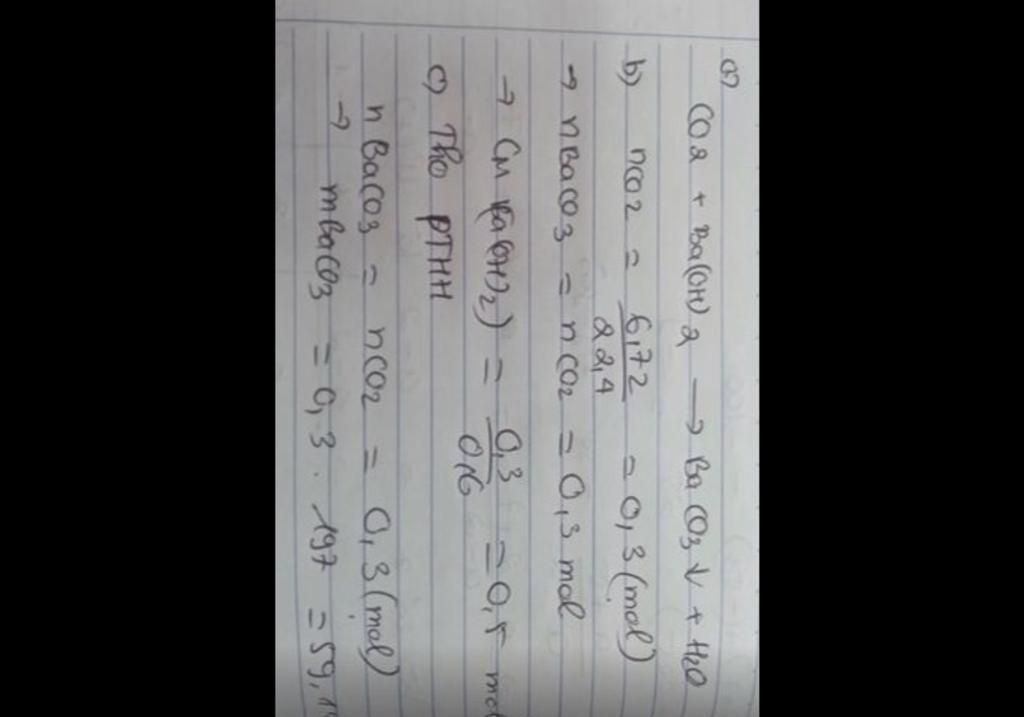 a) CO2 + Ba(OH)2 → BaCO3↓ + H2O
b) nCO2 = 6,72/22,4 = 0,3 (mol)
→ nBaCO3 = nCO2 = 0,3 mol
→ CM Ba(OH)2) = 0,3/0,6 = 0,5
c) Theo PTHH
nBaCO3 = nCO2 = 0,3 (mol)
→ mBaCO3 = 0,3 . 197 = 59,1